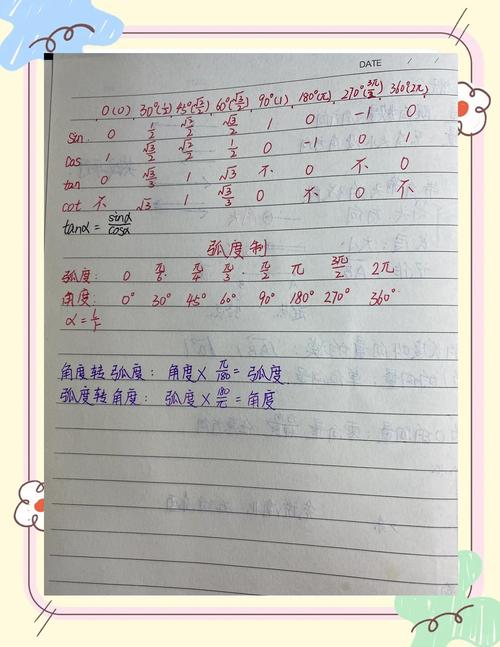 DATE / /
0(0) 30°(1/2) 45°(√2/2) 60°(√3/2) 90°(1) 180°(π) 270°(3π/2) 360°(2π)
sin 0 1/2 √2/2 √3/2 1 0 -1 0
cos 1 √3/2 √2/2 1/2 0 -1 0
tan 0 √3/3 1 √3 不 0 不 0
cot 不 √3 1 √3/3 0 不 0 不
tanα = sinα/cosα
弧度制
弧度: 0 π/6 π/4 π/3 π/2 π 3π/2 2π
角度: 0° 30° 45° 60° 90° 180° 270° 360°
α = l/r
角度转弧度: 角度 × π/180 = 弧度
弧度转角度: 弧度 × 180/π = 角度